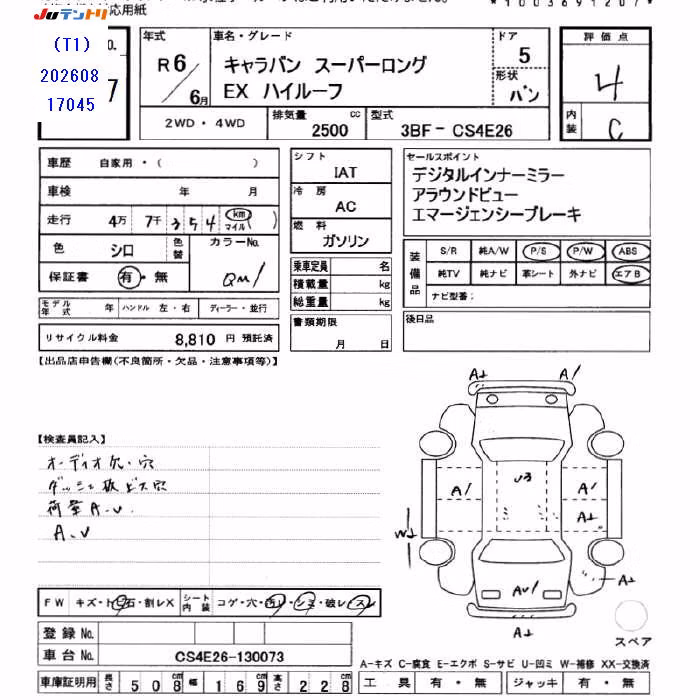 Juテントリ
応用紙
*1003691207*
(T1)
202608
17045
No.
7
年式
R6/6月
車名・グレード
キャラバン スーパーロング
EX ハイルーフ
ドア
5
形状
バン
評価点
4
内装
C
2WD・4WD
排気量
2500 cc
型式
3BF-CS4E26
車歴 自家用・( )
車検 年 月
走行 4万 7千 354 km マイル ( )
色 シロ
色替
カラーNo.
QM1
保証書 有・無
モデル年式 年 ハンドル 左・右 ディーラー・並行
リサイクル料金 8,810 円 預託済
シフト
IAT
冷房
AC
燃料
ガソリン
乗車定員 名
積載量 kg
総重量 kg
書類期限
月 日
セールスポイント
デジタルインナーミラー
アラウンドビュー
エマージェンシーブレーキ
装備品
S/R 純A/W P/S P/W ABS
純TV 純ナビ 革シート 外ナビ エアB
ナビ型番:
後日品
【出品店申告欄(不良箇所・欠品・注意事項等)】
【検査員記入】
オーディオ欠・穴
ダッシュ板ビス穴
荷室A.U.
A.U
FW キズ・ト ビ石・割レX シート内装 コゲ・穴・汚レ・シミ・破レ・スレ
登録No.
車台No. CS4E26-130073
車庫証明用 長さ 508cm 幅 169cm 高さ 228cm
A⊥
A/
U3
A/
A/
A⊥
W⊥
AU/
A⊥
A⊥
スペア
A-キズ C-腐食 E-エクボ S-サビ U-凹ミ W-補修 XX-交換済
工具 有・無 ジャッキ 有・無